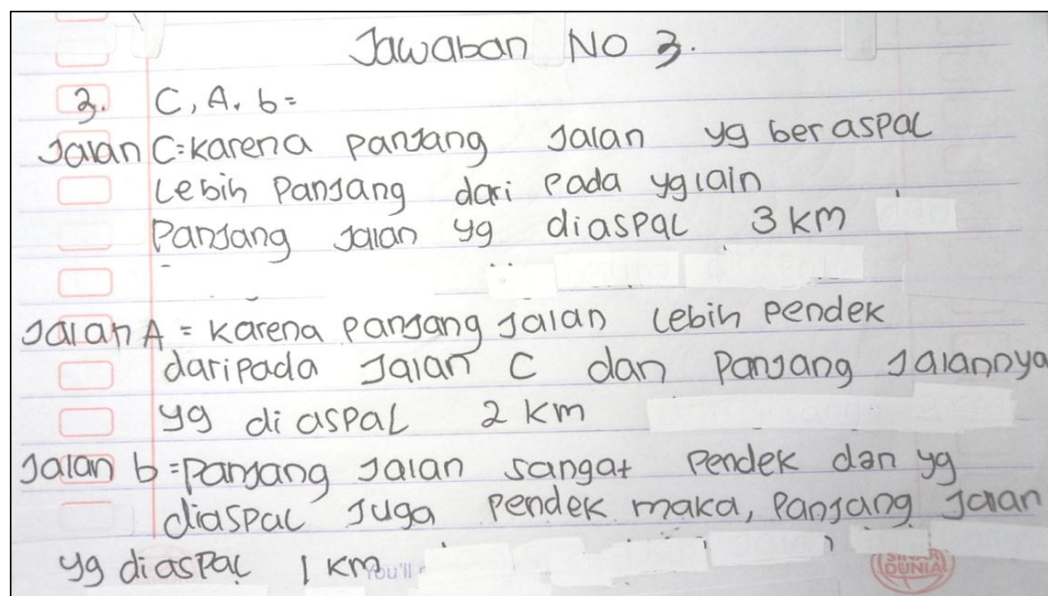 Jawaban No 3.
3. C, A, b =
Jalan C = karena panjang jalan yg beraspal
lebih panjang dari pada yg lain
Panjang jalan yg diaspal 3 km
Jalan A = karena panjang jalan lebih pendek
daripada jalan C dan panjang jalannya
yg di aspal 2 km
Jalan b = panjang jalan sangat pendek dan yg
diaspal juga pendek maka, panjang jalan
yg diaspal 1 km
You'll
SINAR
DUNIA